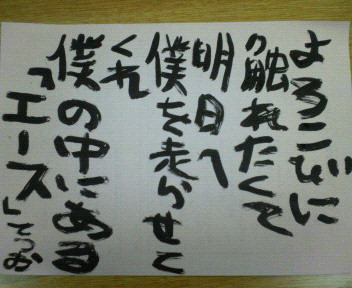 よろこびに
触れたくて
明日へ
僕を走らせて
くれ
僕の中にある
「エース」てつお